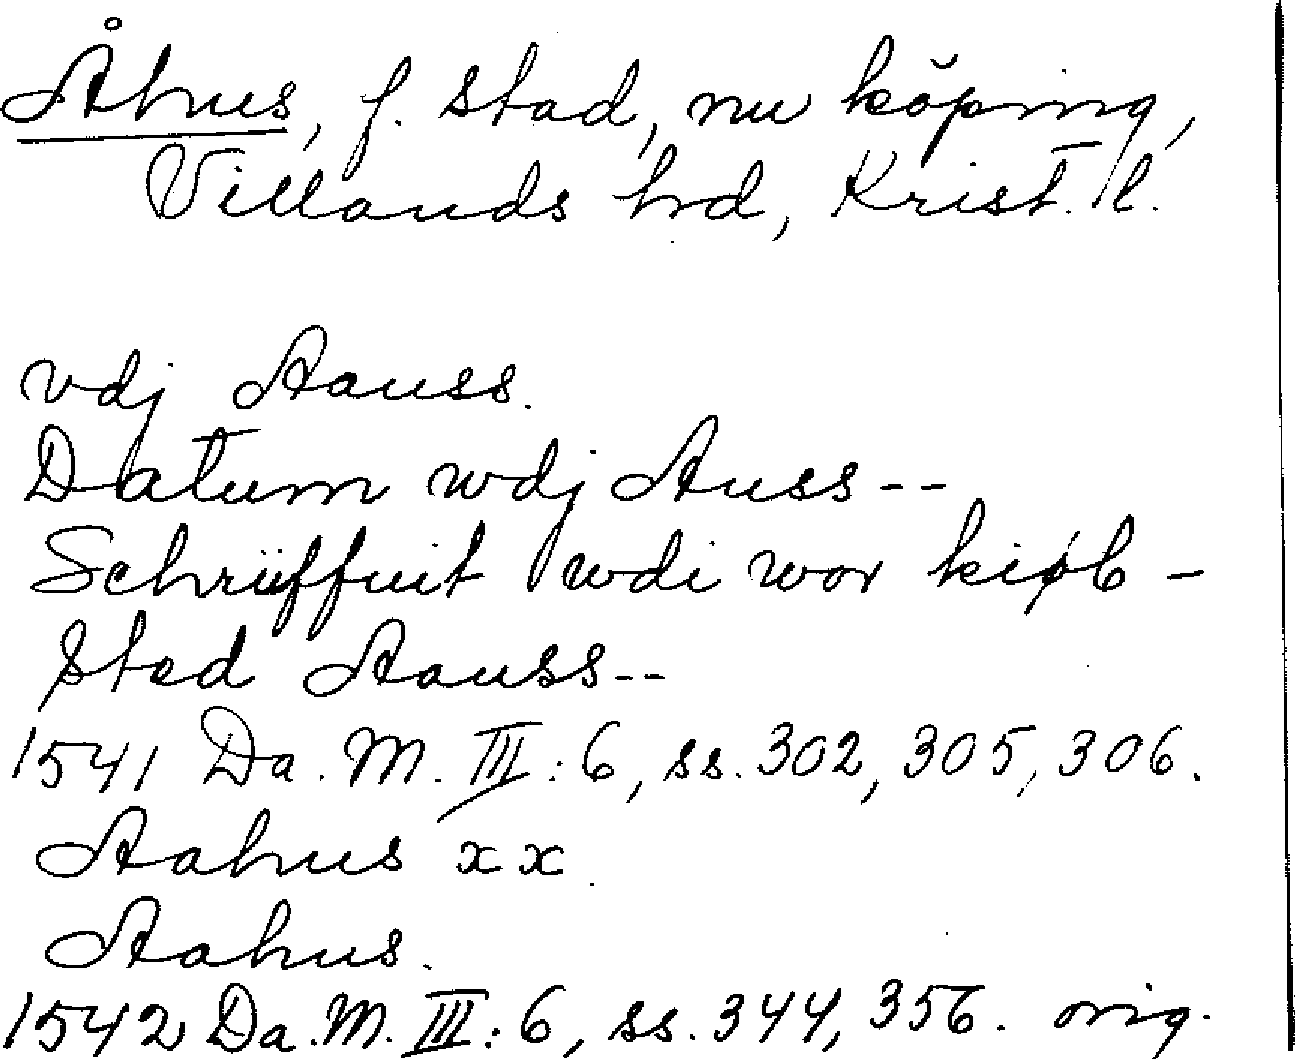 Åhus, f. stad, nu köping,
Villands hrd, Krist. l.
vdj Aauss.
Datum wdj Auss --
Schriiffuit wdi wor kiøb -
sted Aauss --
1541 Da. M. III: 6, ss. 302, 305, 306.
Aahus xx
Aahus.
1542 Da. M. III: 6, ss. 344, 356. orig.